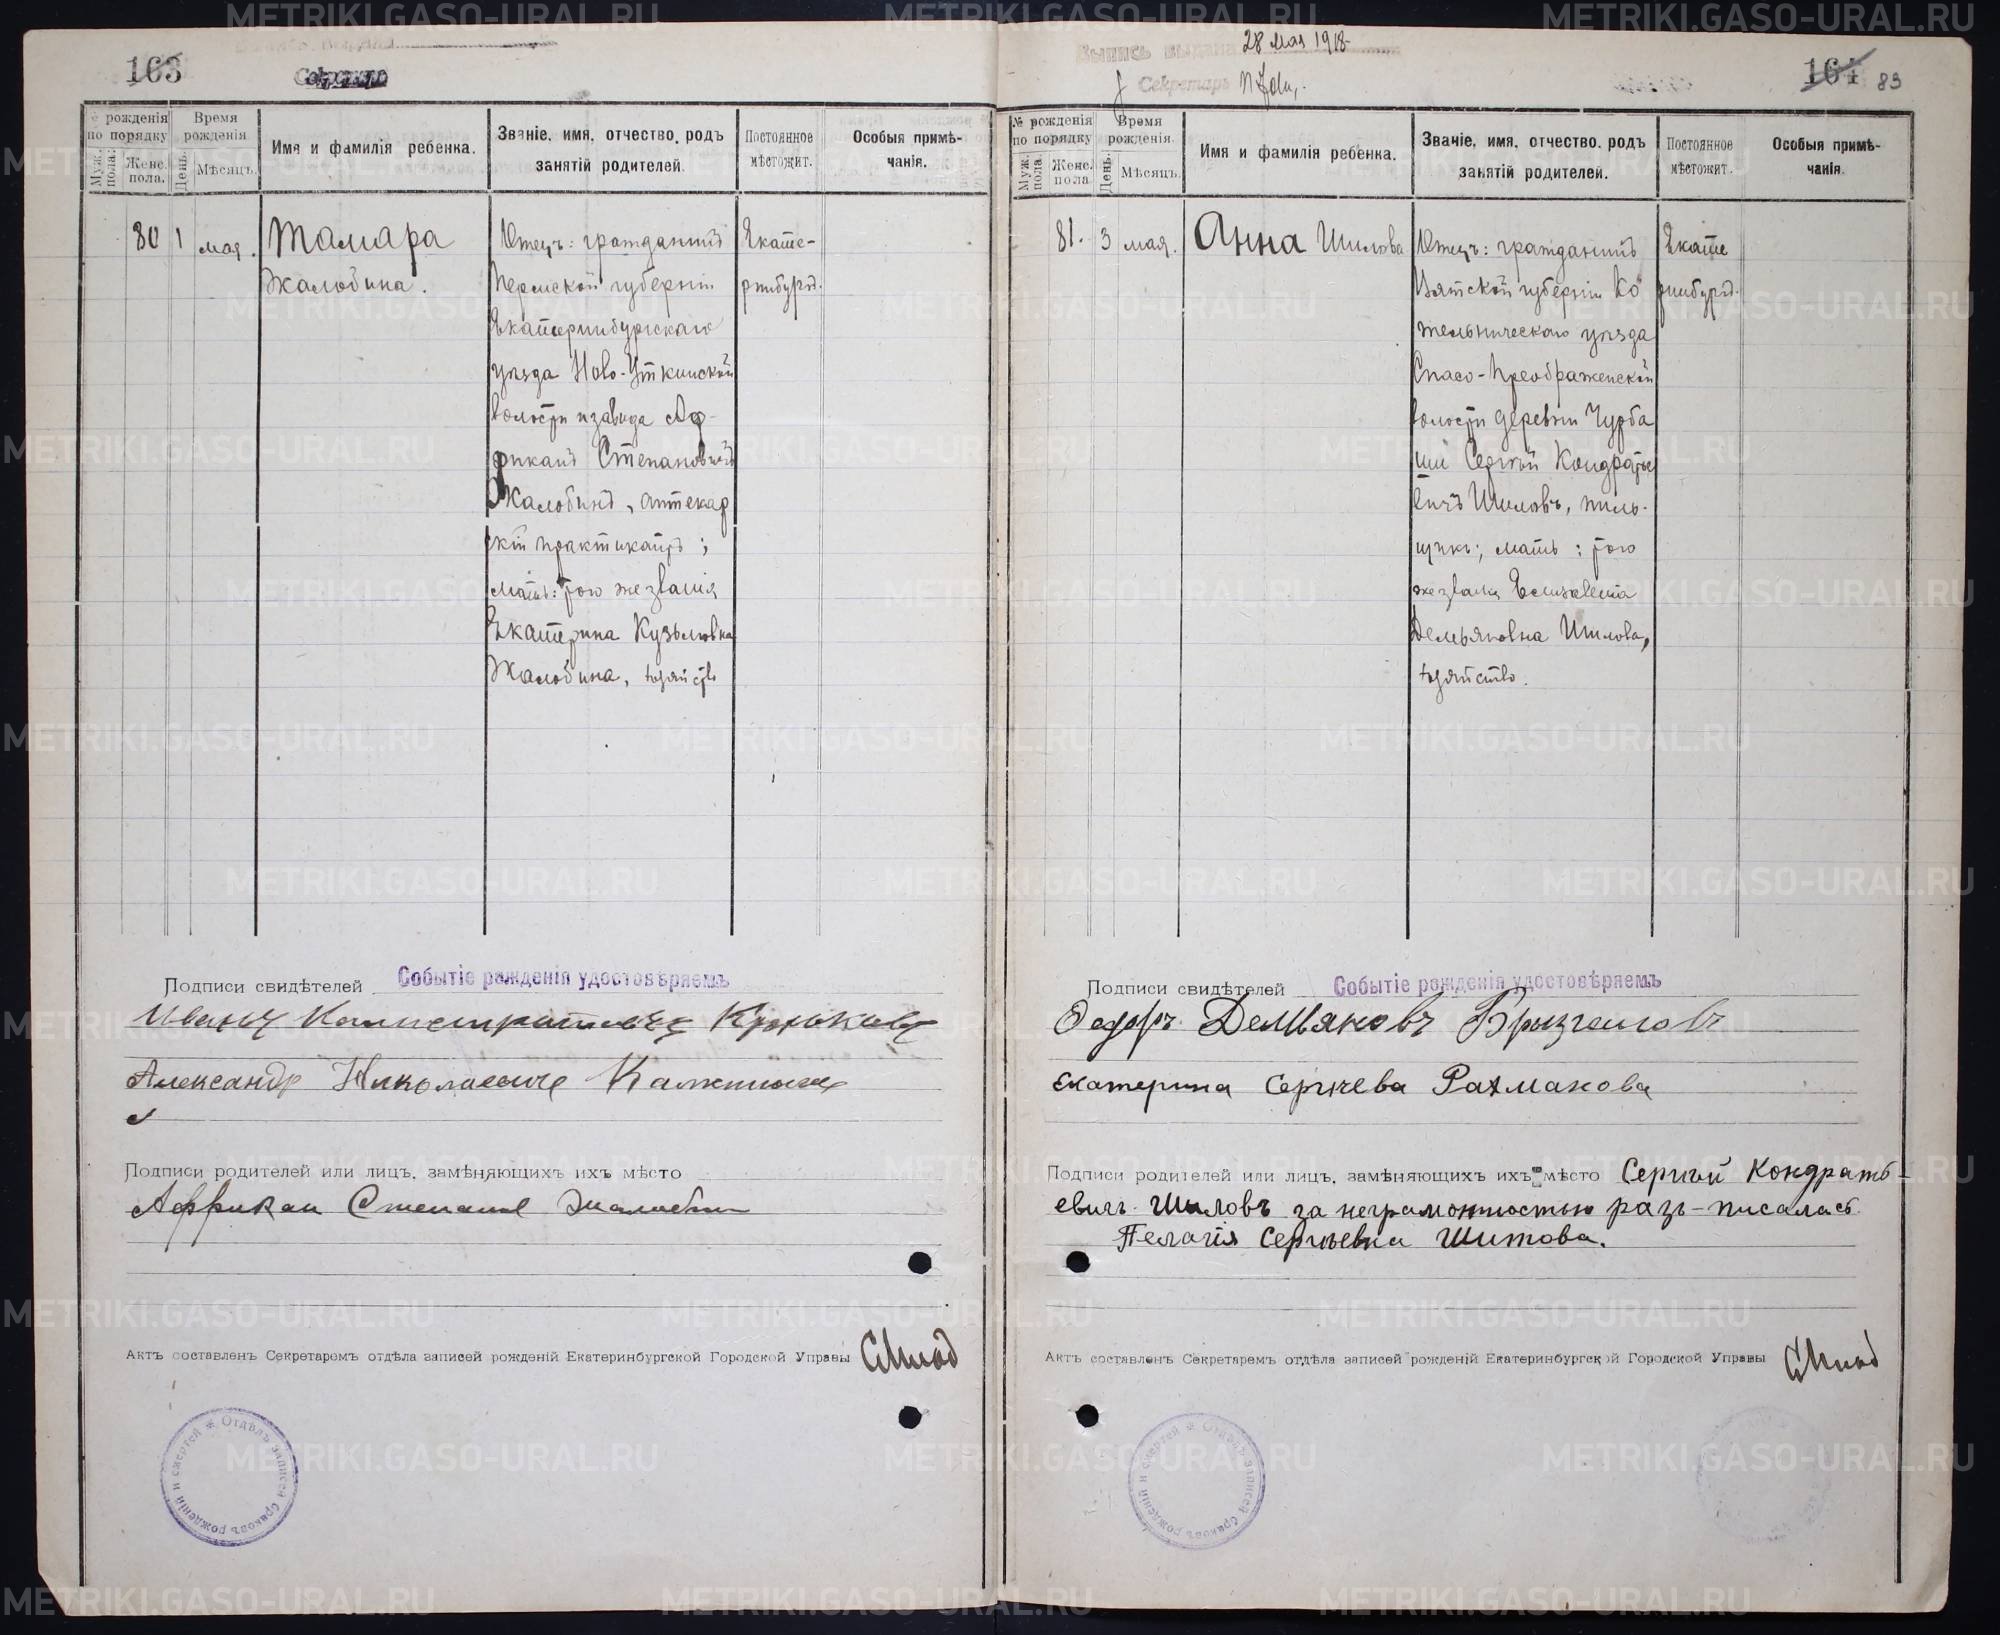 163
Секретарь
№ рожденія по порядку
Муж. пола.
Женс. пола.
Время рожденія
День.
Мѣсяцъ.
Имя и фамилія ребенка.
Званіе, имя, отчество, родъ занятій родителей.
Постоянное мѣстожит.
Особыя примѣчанія.
80
1
мая.
Тамара
Жалобина.
Отецъ: гражданинъ
Пермской губерніи
Екатеринбургскаго
уѣзда Ново-Уткинской
волости и завода Аф-
риканъ Степановичъ
Жалобинъ, аптекар
скій практикантъ;
мать: того же званія
Екатерина Кузьмовна
Жалобина, хозяйство
Екате-
ринбургъ.
Подписи свидѣтелей
Событіе рожденія удостовѣряемъ
Иванъ Калистратовичъ Крюковъ
Александр Николаевичъ
Подписи родителей или лицъ, замѣняющихъ ихъ мѣсто
Африкан Степанов Жалобин
Актъ составленъ Секретаремъ отдѣла записей рожденій Екатеринбургской Городской Управы
Отдѣлъ записей браковъ рожденій и смертей
Выпись выдана 28 мая 1918
Секретарь
164
83
№ рожденія по порядку
Муж. пола.
Женс. пола
Время рожденія.
День.
Мѣсяцъ.
Имя и фамилія ребенка.
Званіе, имя, отчество, родъ занятій родителей.
Постоянное мѣстожит.
Особыя примѣчанія.
81.
3
мая.
Анна Шилова
Отецъ: гражданинъ
Вятской губерніи Ко
тельническаго уѣзда
Спасо-Преображенской
волости деревни Чурба
ши Сергѣй Кондратье
вичъ Шиловъ, пиль-
щикъ; мать: того
же званія Елизавета
Демьяновна Шилова,
хозяйство.
Екате
ринбургъ.
Подписи свидѣтелей
Событіе рожденія удостовѣряемъ
Федоръ Демьяновъ Брызгаловъ
Екатерина Сергѣева Рахманова
Подписи родителей или лицъ, замѣняющихъ ихъ мѣсто Сергѣй Кондрать-
евичъ Шиловъ за неграмотностью разъ-писалась
Пелагія Сергѣевна Шитова.
Актъ составленъ Секретаремъ отдѣла записей рожденій Екатеринбургской Городской Управы
Отдѣлъ записей браковъ рожденій и смертей
METRIKI.GASO-URAL.RU